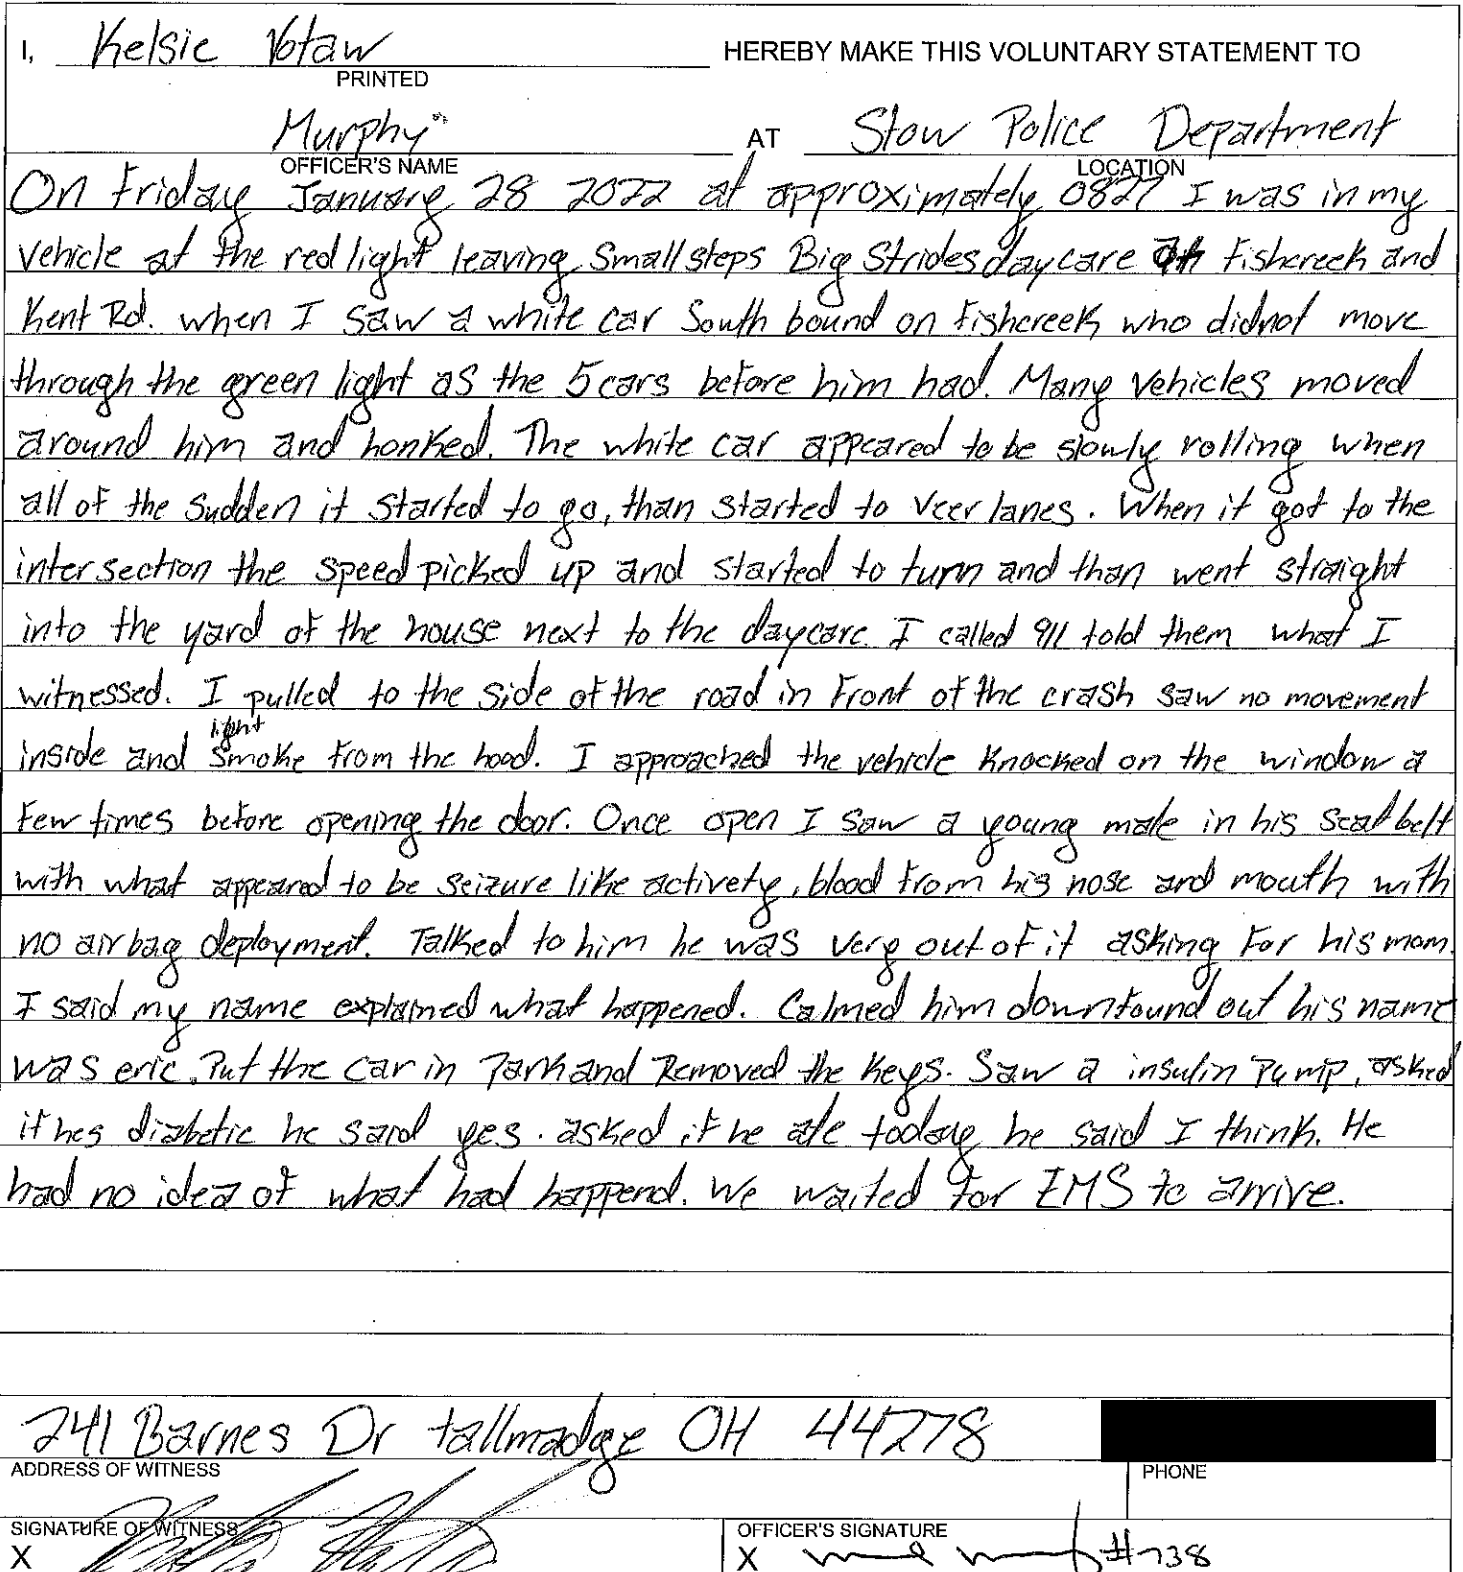 I, Kelsie Votaw HEREBY MAKE THIS VOLUNTARY STATEMENT TO
PRINTED
Murphy AT Stow Police Department
OFFICER'S NAME LOCATION
On Friday January 28 2022 at approximately 0827 I was in my
vehicle at the red light leaving Small steps Big Strides daycare at Fishcreek and
Kent Rd. when I saw a white car South bound on Fishcreek who didnot move
through the green light as the 5 cars before him had. Many vehicles moved
around him and honked. The white car appeared to be slowly rolling when
all of the sudden it started to go, than started to veer lanes. When it got to the
intersection the speed picked up and started to turn and than went straight
into the yard of the house next to the daycare. I called 911 told them what I
witnessed. I pulled to the side of the road in front of the crash saw no movement
inside and light smoke from the hood. I approached the vehicle knocked on the window a
few times before opening the door. Once open I saw a young male in his seat belt
with what appeared to be seizure like activety, blood from his nose and mouth with
no airbag deployment. Talked to him he was very out of it asking for his mom.
I said my name explained what happened. Calmed him down found out his name
was eric. Put the car in Park and Removed the keys. Saw a insulin pump, asked
if hes diabetic he said yes. asked if he ate today he said I think. He
had no idea of what had happend. We waited for EMS to arrive.
241 Barnes Dr tallmadge OH 44278
ADDRESS OF WITNESS PHONE
SIGNATURE OF WITNESS OFFICER'S SIGNATURE
X X #738